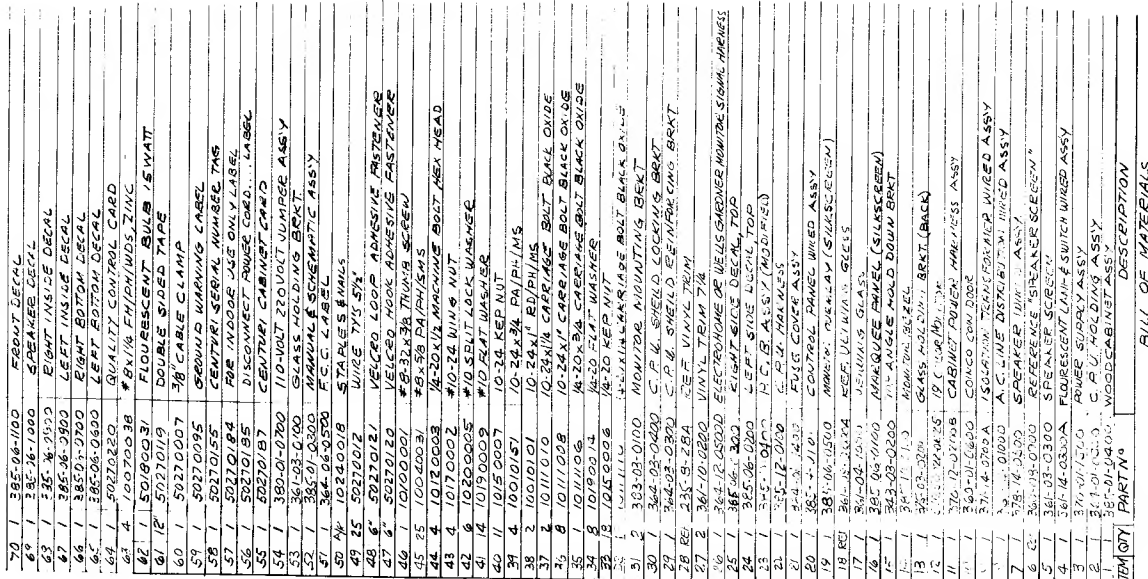 70 1 385-06-1100 FRONT DECAL
69 1 385-06-1000 SPEAKER DECAL
68 1 385-06-0900 RIGHT INSIDE DECAL
67 1 385-06-0800 LEFT INSIDE DECAL
66 1 385-06-0700 RIGHT BOTTOM DECAL
65 1 385-06-0600 LEFT BOTTOM DECAL
64 1 50270220 QUALITY CONTROL CARD
63 4 10070038 #8x1/4 FH/PH/WDS, ZINC
62 1 50180031 FLOURESCENT BULB 15 WATT
61 12" 50270119 DOUBLE SIDED TAPE
60 1 50270007 3/8" CABLE CLAMP
59 1 50270095 GROUND WARNING LABEL
58 1 50270155 CENTURI SERIAL NUMBER TAG
57 1 50270184 FOR INDOOR USE ONLY LABEL
56 1 50270185 DISCONNECT POWER CORD... LABEL
55 1 50270187 CENTURI CABINET CARD
54 1 380-01-0700 110-VOLT 220 VOLT JUMPER ASS'Y
53 1 361-03-0100 GLASS HOLDING BRKT
52 1 385-01-0300 MANUAL & SCHEMATIC ASS'Y
51 1 364-06-0500 F.C.C. LABEL
50 A/R 10240018 STAPLES & NAILS
49 25 50270012 WIRE TY'S 5 1/2"
48 6" 50270121 VELCRO LOOP ADHESIVE FASTENER
47 6" 50270120 VELCRO HOOK ADHESIVE FASTENER
46 1 10100001 #8-32x3/8 THUMB SCREW
45 25 10040031 #8x5/8 PA/PH/SMS
44 4 10120003 1/4-20x1 1/2 MACHINE BOLT HEX HEAD
43 4 10170002 10-24 WING NUT
42 6 10200005 #10 SPLIT LOCK WASHER
41 14 10190009 #10 FLAT WASHER
40 11 10150007 10-24 KEP NUT
39 4 10010151 10-24x3/4 PA/PH/MS
38 2 10010101 10-24x1" RD/PH/MS
37 2 10111010 10-24x1 1/4 CARRIAGE BOLT BLACK OXIDE
36 8 10111008 10-24x1" CARRIAGE BOLT BLACK OXIDE
35 1 10111106 1/4-20x3/4 CARRIAGE BOLT BLACK OXIDE
34 8 10190014 1/4-20 FLAT WASHER
33 18 10150006 1/4-20 KEP NUT
CARRIAGE BOLT BLACK OXIDE
31 2 303-03-0100 MONITOR MOUNTING BRKT
30 1 364-03-0400 C.P.U. SHIELD LOCKING BRKT
29 1 364-03-0300 C.P.U. SHIELD REINFORCING BRKT
28 REF 235-8-28A REF VINYL TRIM
27 2 361-10-0200 VINYL TRIM 7/16
26 1 364-12-0300 ELECTROHOME OR WELLS GARDNER MONITOR SIGNAL HARNESS
25 1 RIGHT SIDE DECAL, TOP
24 1 385-06-0200 LEFT SIDE DECAL TOP
23 1 P.C.B. ASS'Y (MODIFIED)
22 1 C.P.U. HARNESS
21 1 FUSE COVER ASSY
20 1 CONTROL PANEL WIRED ASSY
19 1 (SILKSCREEN)
18 REF REF. VIEWING GLASS
17 1 VIEWING GLASS
16 1 MARQUEE PANEL (SILKSCREEN)
15 1 343-03-0200 HOLD DOWN BRKT
14 1 MONITOR BEZEL
13 1 GLASS HOLDING BRKT (BACK)
12 1
11 1 CABINET POWER HARNESS ASSY
10 1 COINCO COIN DOOR
9 1 ISOLATION TRANSFORMER WIRED ASSY
8 1 A.C. LINE DISTRIBUTION WIRED ASSY
7 1 SPEAKER ASSY
6 REFERENCE "SPEAKER SCREEN"
5 1 361-03-0300 SPEAKER SCREEN
4 1 361-14-0300A FLOURESCENT UNIT & SWITCH WIRED ASSY
3 1 POWER SUPPLY ASSY
2 1 C.P.U. HOLDING ASSY
1 1 WOOD CABINET ASSY
ITEM QTY PART Nº DESCRIPTION
BILL OF MATERIALS